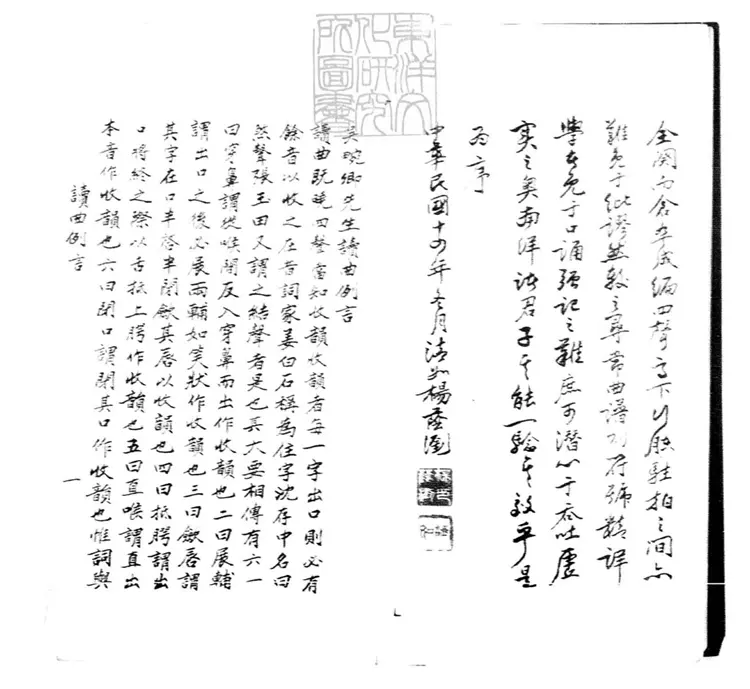 全闋而倉卒成編四聲高下行腔駐拍之間亦
難免于紕謬然較之尋常曲譜則符號精詳
學者免于口誦強記之難庶可潛心于吞吐虛
實之奧南洋諸君子其能一驗其效乎是
為序
中華民國十四年冬月 楊蔭瀏
吳畹卿先生讀曲例言
讀曲既曉四聲當知收韻收韻者每一字出口則必有
餘音以收之在昔詞家姜白石稱為住字沈存中名曰
煞聲張玉田又謂之結聲者是也其大要相傳有六一
曰穿鼻謂從喉間反入穿鼻而出作收韻也二曰展輔
謂出口之後必展兩輔如笑狀作收韻也三曰斂唇謂
其字在口半啓半閉斂其唇以收韻也四曰抵腭謂出
口將終之際以舌抵上腭作收韻也五曰直喉謂直出
本音作收韻也六曰閉口謂閉其口作收韻也惟詞與
讀曲例言
一
東洋文化研究所圖書